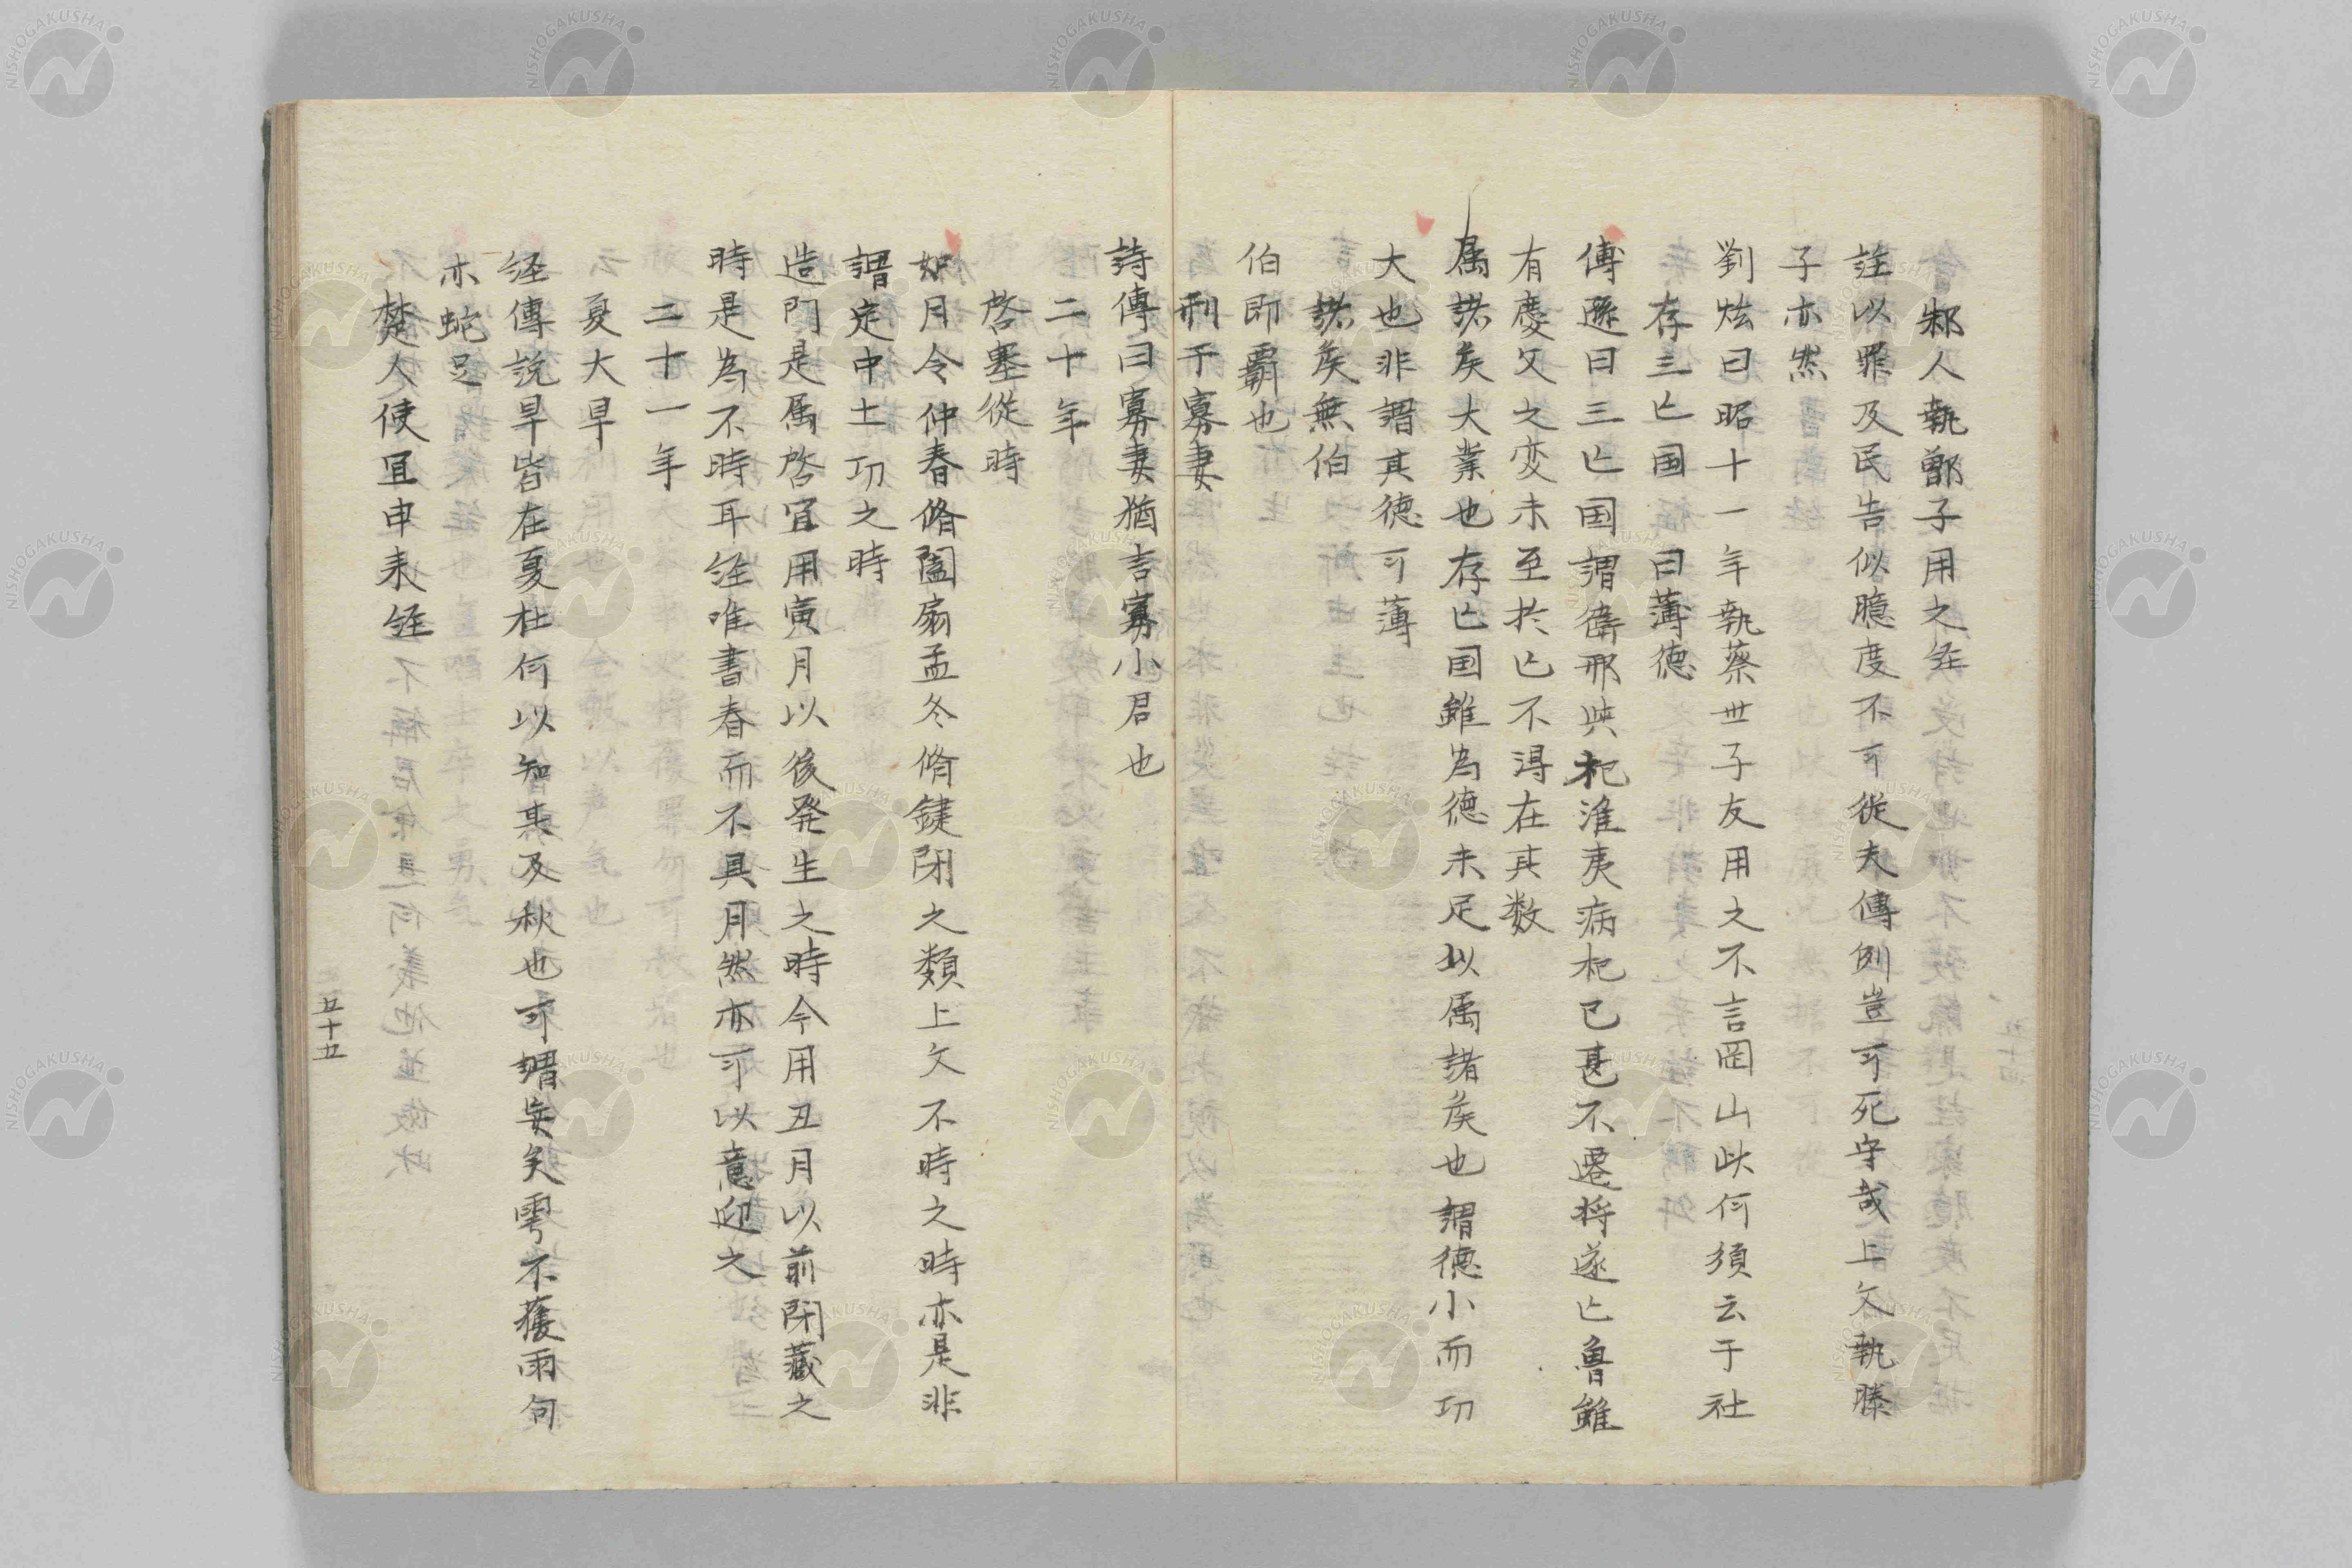 邾人執鄫子用之経
註以罪及民告似臆度不可従夫傳例豈可死守哉上文執滕
子亦然
劉炫曰昭十一年執蔡世子友用之不言岡山此何須云于社
存三亡国 曰薄德
傅遜曰三亡国謂衛邢與杞淮夷病杞已甚不遷将遂亡魯雖
有慶父之変未至於亡不得在其数
属諸矦大業也存亡国雖為德未足以属諸矦也謂德小而功
大也非謂其德可薄
諸矦無伯
伯即覇也
刑于寡妻
詩傳曰寡妻猶言寡小君也
二十年
啓塞從時
如月令仲春脩闔扇孟冬脩鍵閉之類上文不時之時亦是非
謂定中土功之時
造門是属啓宜用寅月以後発生之時今用丑月以前閉蔵之
時是為不時耳経唯書春而不具月然亦可以意迎之
二十一年
夏大旱
経傳説旱皆在夏杜何以智其及秋也可謂妄矣雩不獲雨句
亦蛇足
楚人使宜申来経
五十五
NISHOGAKUSHA